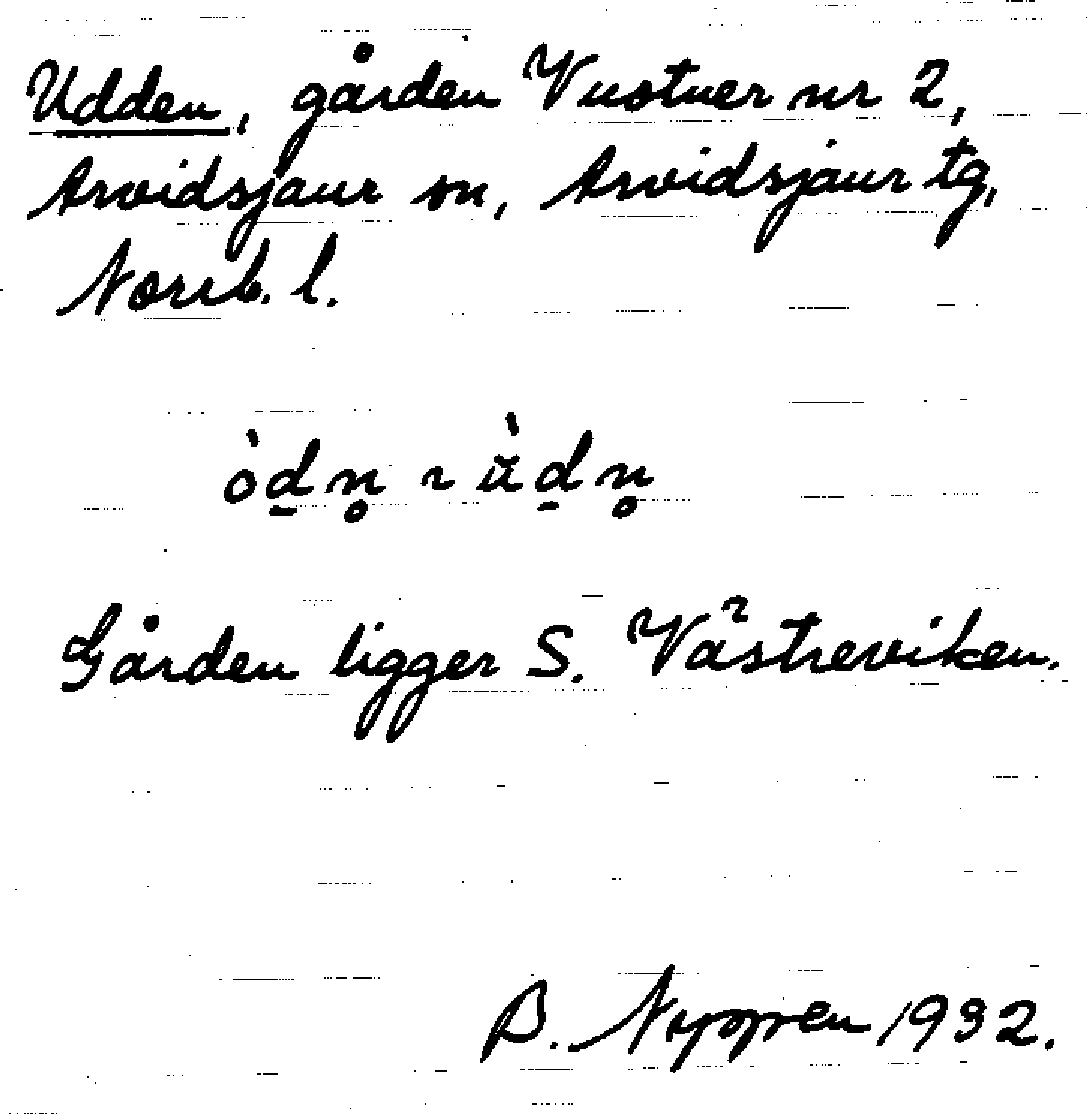 Udden, gården Vuotner nr 2,
Arvidsjaur sn, Arvidsjaur tg,
Norrb. l.
òd̲n̥ ~ ǜd̲n̥
Gården ligger S. Västreviken.
B. 1932.